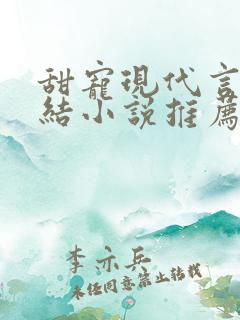 甜寵現代言
結小説推薦
李亦兵
未经同意禁止转载